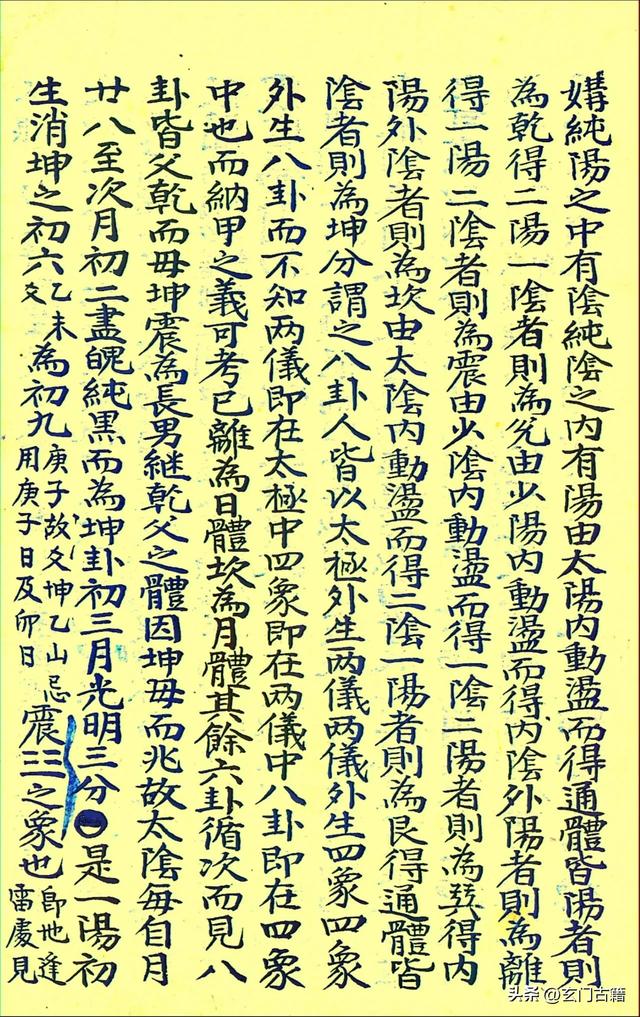 媾純陽之中有陰純陰之內有陽由太陽內動盪而得通體皆陽者則
為乾得二陽一陰者則為兌由少陽內動盪而得內陰外陽者則為離
得一陽二陰者則為震由少陰內動盪而得一陰二陽者則為巽得內
陽外陰者則為坎由太陰內動盪而得二陰一陽者則為艮得通體皆
陰者則為坤分謂之八卦人皆以太極外生两儀两儀外生四象四象
外生八卦而不知两儀即在太極中四象即在两儀中八卦即在四象
中也而納甲之義可考已離為日體坎為月體其餘六卦循次而見八
卦皆父乾而毋坤震為長男継乾父之體因坤毋而兆故太陰每自月
廿八至次月初二盡魄純黑而為坤卦初三月光明三分是一陽初
生消坤之初六乙未爻為初九庚子故爻坤乙山忌用庚子日及卯日震☳之象也即地逢雷處見
头条@玄门古籍